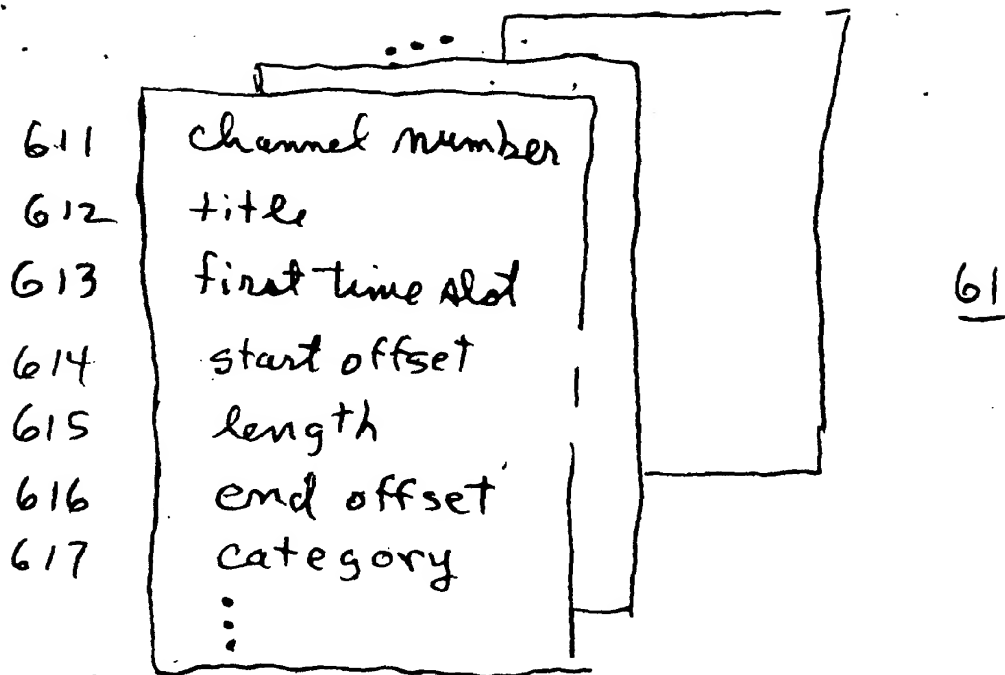 ...
611 channel number
612 title
613 first time slot
61
614 start offset
615 length
616 end offset
617 category
⋮